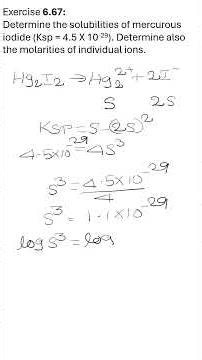 Exercise 6.67:
Determine the solubilities of mercurous
iodide (Ksp = 4.5 X 10⁻²⁹). Determine also
the molarities of individual ions.
Hg₂I₂ → Hg₂²⁺ + 2I⁻
S 2S
Ksp = S (2S)²
4.5x10⁻²⁹ = 4S³
S³ = 4.5x10⁻²⁹
4
S³ = 1.1x10⁻²⁹
log S³ = log